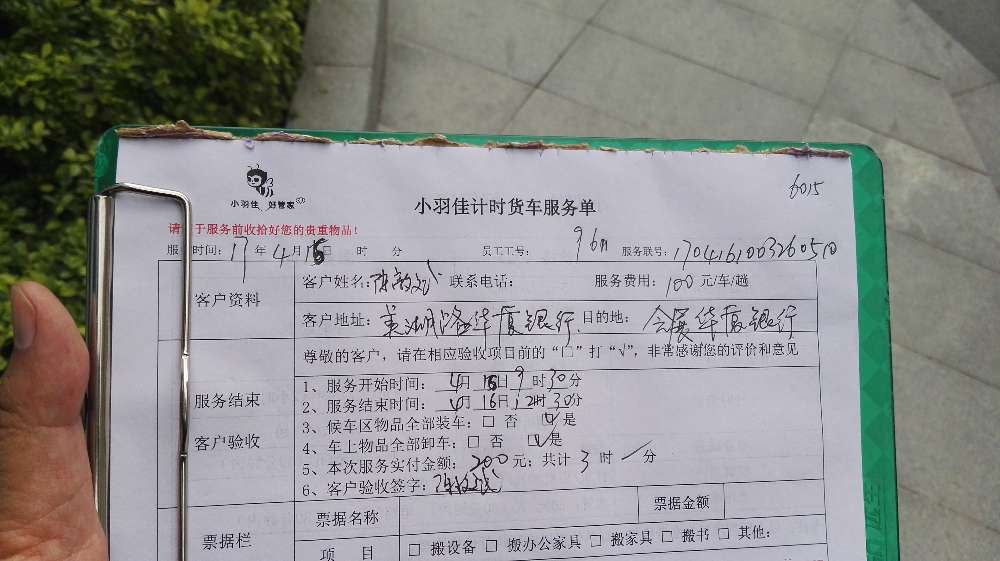 6015
小羽佳 好管家
小羽佳计时货车服务单
请于服务前收拾好您的贵重物品！
服 时间：17年4月16日 时 分 员工工号： 服务联号：1704161003260510
客户资料 客户姓名： 联系电话： 服务费用：100元/车/趟
客户地址：美湖路华厦银行 目的地：会展华厦银行
尊敬的客户，请在相应验收项目前的“口”打“√”，非常感谢您的评价和意见
服务结束
客户验收
1、服务开始时间：4月16日9时30分
2、服务结束时间：4月16日12时30分
3、候车区物品全部装车：□ 否 ☑是
4、车上物品全部卸车：□ 否 ☑是
5、本次服务实付金额：200元；共计3时/分
6、客户验收签字：
票据栏 票据名称 票据金额
项 目 □ 搬设备 □ 搬办公家具 □ 搬家具 □ 搬书 □ 其他：